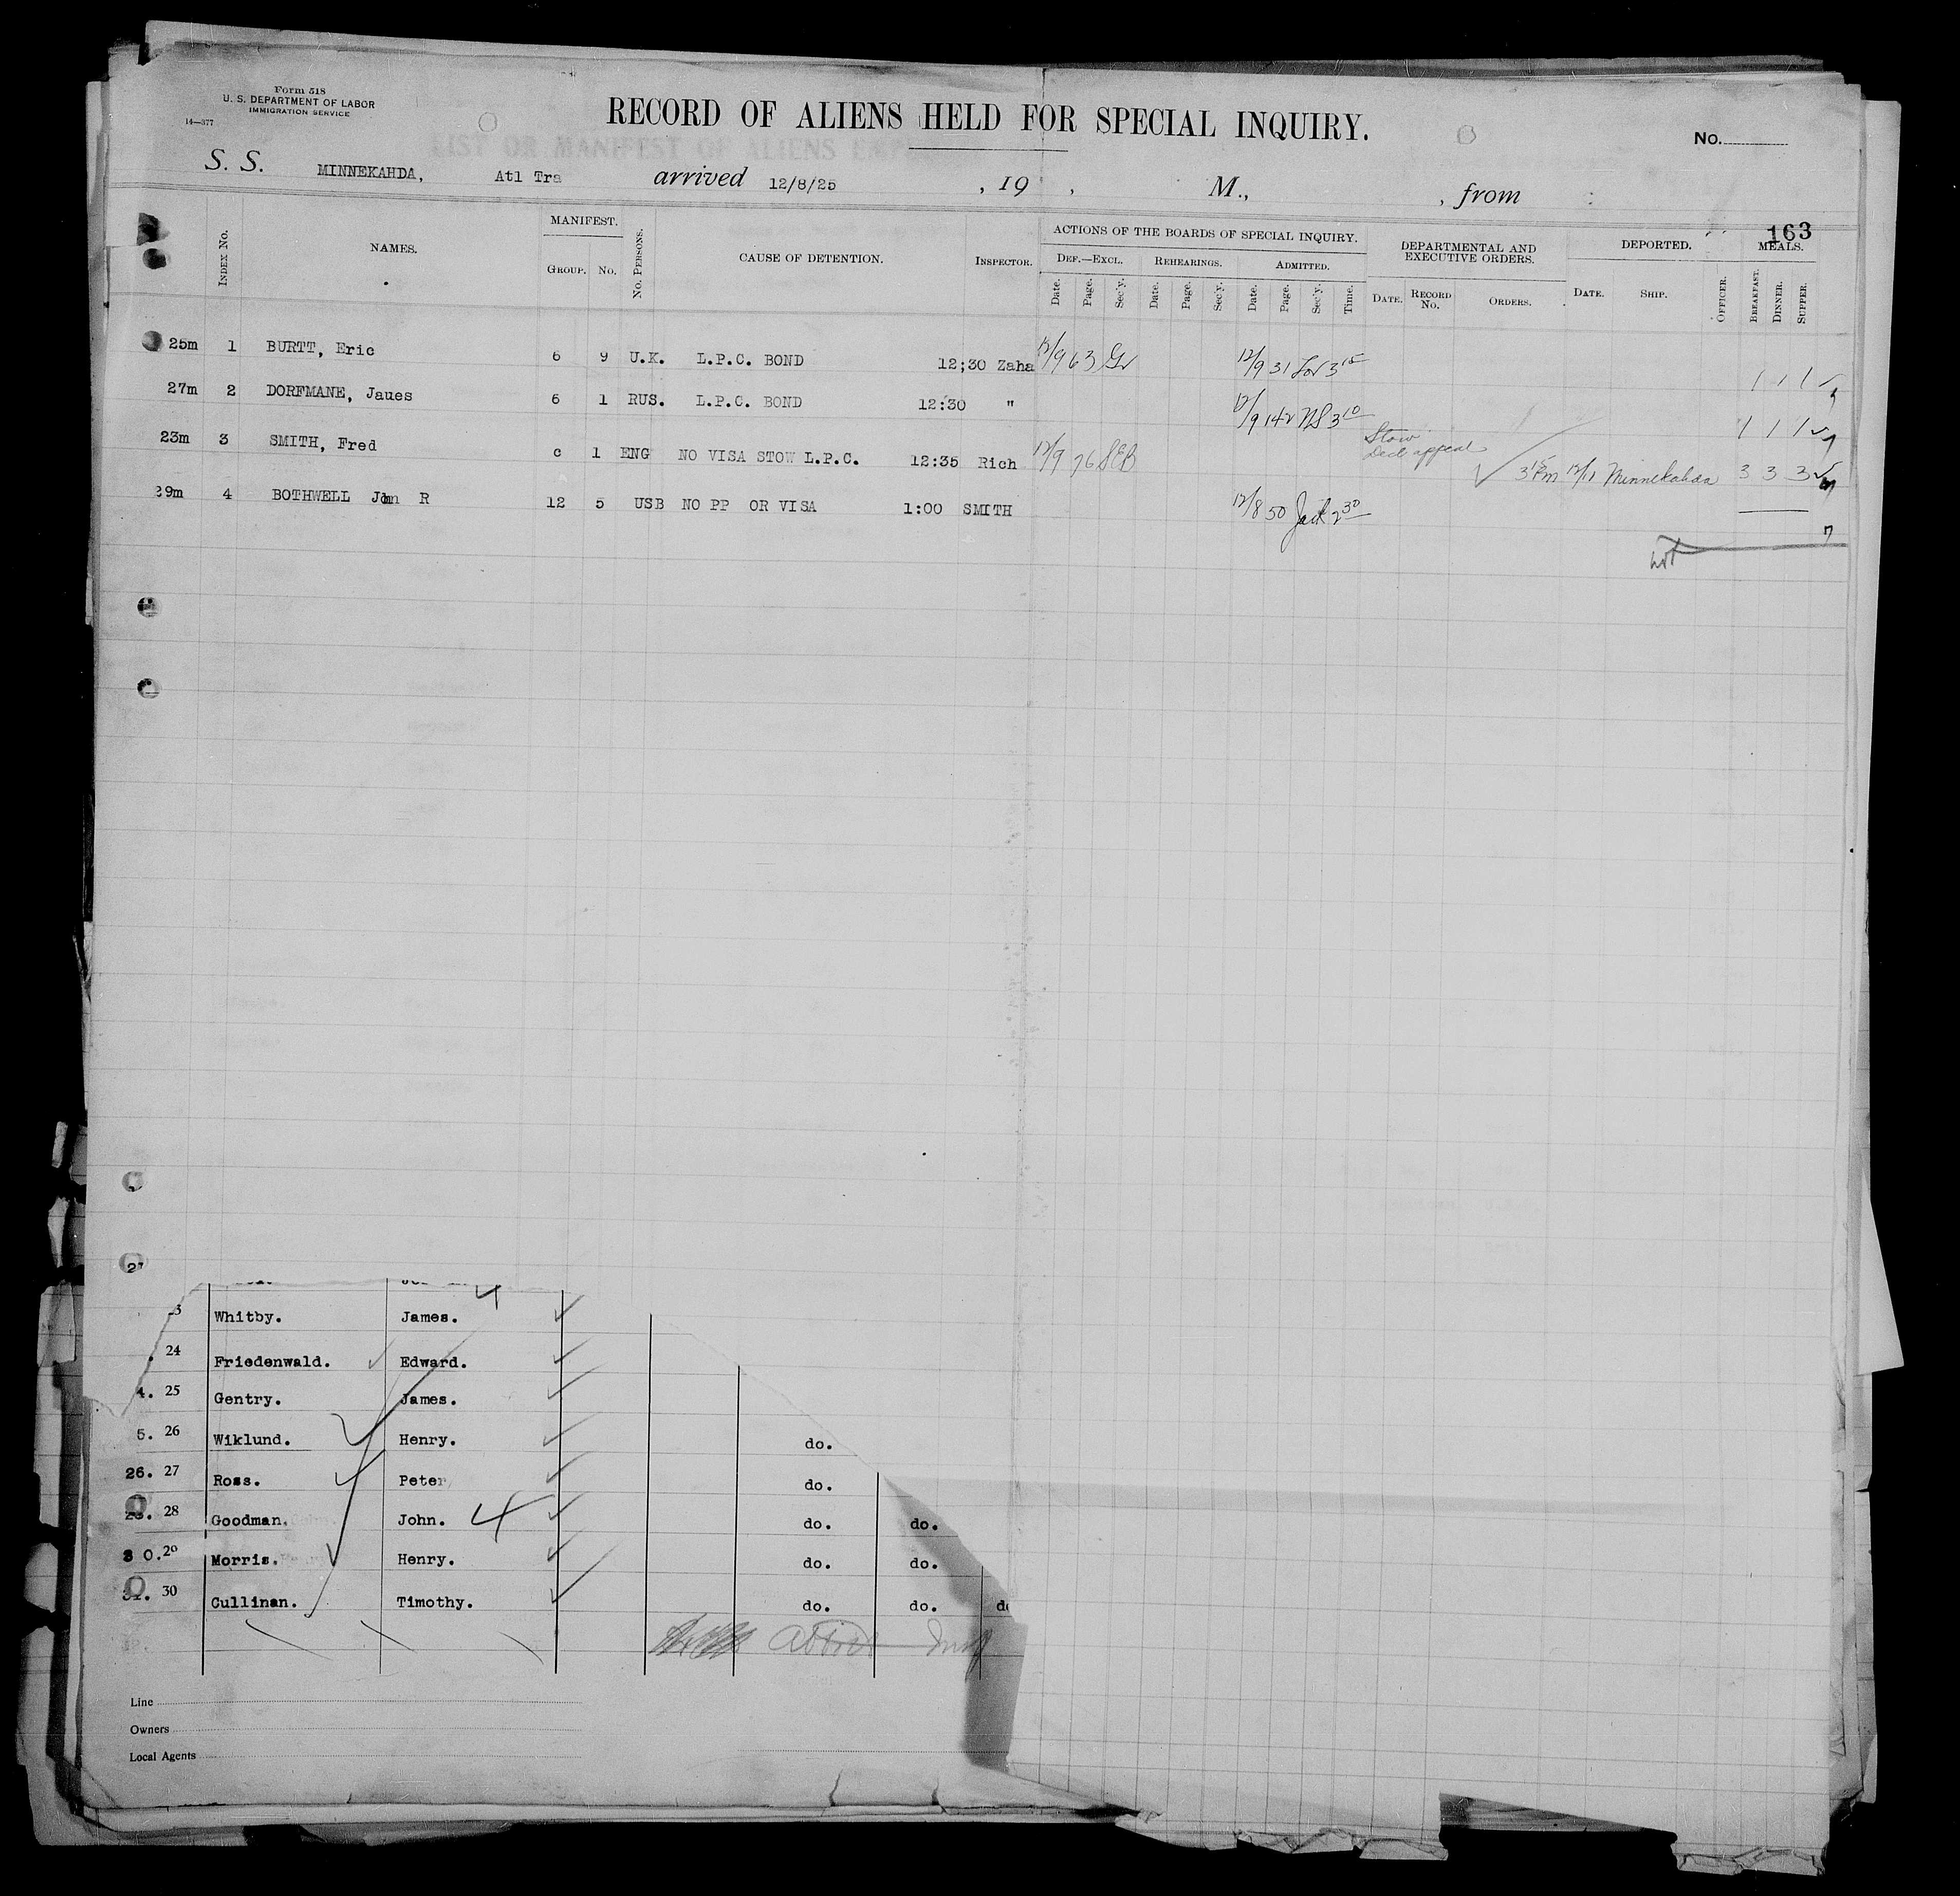 Form 518
U. S. DEPARTMENT OF LABOR
IMMIGRATION SERVICE
14—377
RECORD OF ALIENS HELD FOR SPECIAL INQUIRY.
No.
LIST OR MANIFEST OF ALIENS
S. S. MINNEKAHDA, Atl Tra arrived 12/8/25 , 19 , M., , from
163
INDEX No. NAMES. MANIFEST. GROUP. No. No. PERSONS. CAUSE OF DETENTION. INSPECTOR. ACTIONS OF THE BOARDS OF SPECIAL INQUIRY. DEF.—EXCL. Date. Page. Sec'y. REHEARINGS. Date. Page. Sec'y. ADMITTED. Date. Page. Sec'y. Time. DEPARTMENTAL AND EXECUTIVE ORDERS. DATE. RECORD No. ORDERS. DEPORTED. DATE. SHIP. OFFICER. MEALS. BREAKFAST. DINNER. SUPPER.
25m 1 BURTT, Eric 6 9 U.K. L.P.C. BOND 12;30 Zaha 12/9 63 Gr 12/9 31 Lor 3 15 1 1 1
27m 2 DORFMANE, Jaues 6 1 RUS. L.P.C. BOND 12:30 " 12/9 142 NS 3 10 1 1 1
23m 3 SMITH, Fred c 1 ENG NO VISA STOW L.P.C. 12:35 Rich 12/9 76 SEB Stow Decl appeal 3 15 Pm 12/11 Minnekahda 3 3 3
29m 4 BOTHWELL John R 12 5 USB NO PP OR VISA 1:00 SMITH 12/8 50 Jack 2 30
27
3 Whitby. James.
24 Friedenwald. Edward.
4. 25 Gentry. James.
5. 26 Wiklund. Henry. do.
26. 27 Ross. Peter do.
28 Goodman. John. 4 do. do.
30. 29 Morris. Henry. do. do.
31. 30 Cullinan. Timothy. do. do. do
Line
Owners
Local Agents